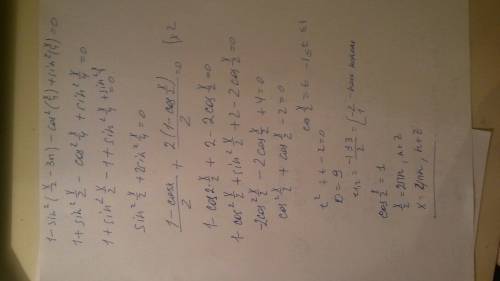 1-sin²(x/2 - 3π) - cos²(x/4) + sin²(x/4) = 0
1+sin² x/2 - cos² x/4 + sin² x/4 = 0
1+sin² x/2 - 1 + sin² x/4 + sin² x/4 = 0
sin² x/2 + 2sin² x/4 = 0
(1-cosx)/2 + 2(1-cos x/2)/2 = 0 |x2
1-cos2 x/2 + 2 - 2cos x/2 = 0
1-cos² x/2 + sin² x/2 + 2 - 2cos x/2 = 0
-2cos² x/2 - 2cos x/2 + 4 = 0
cos² x/2 + cos x/2 - 2 = 0
cos x/2 = t, -1 ≤ t ≤ 1
t² + t - 2 = 0
D = 9
t1,2 = (-1±3)/2 = [-2
1
cos x/2 = 1
x/2 = 2πn, n∈Z
x = 4πn, n∈Z